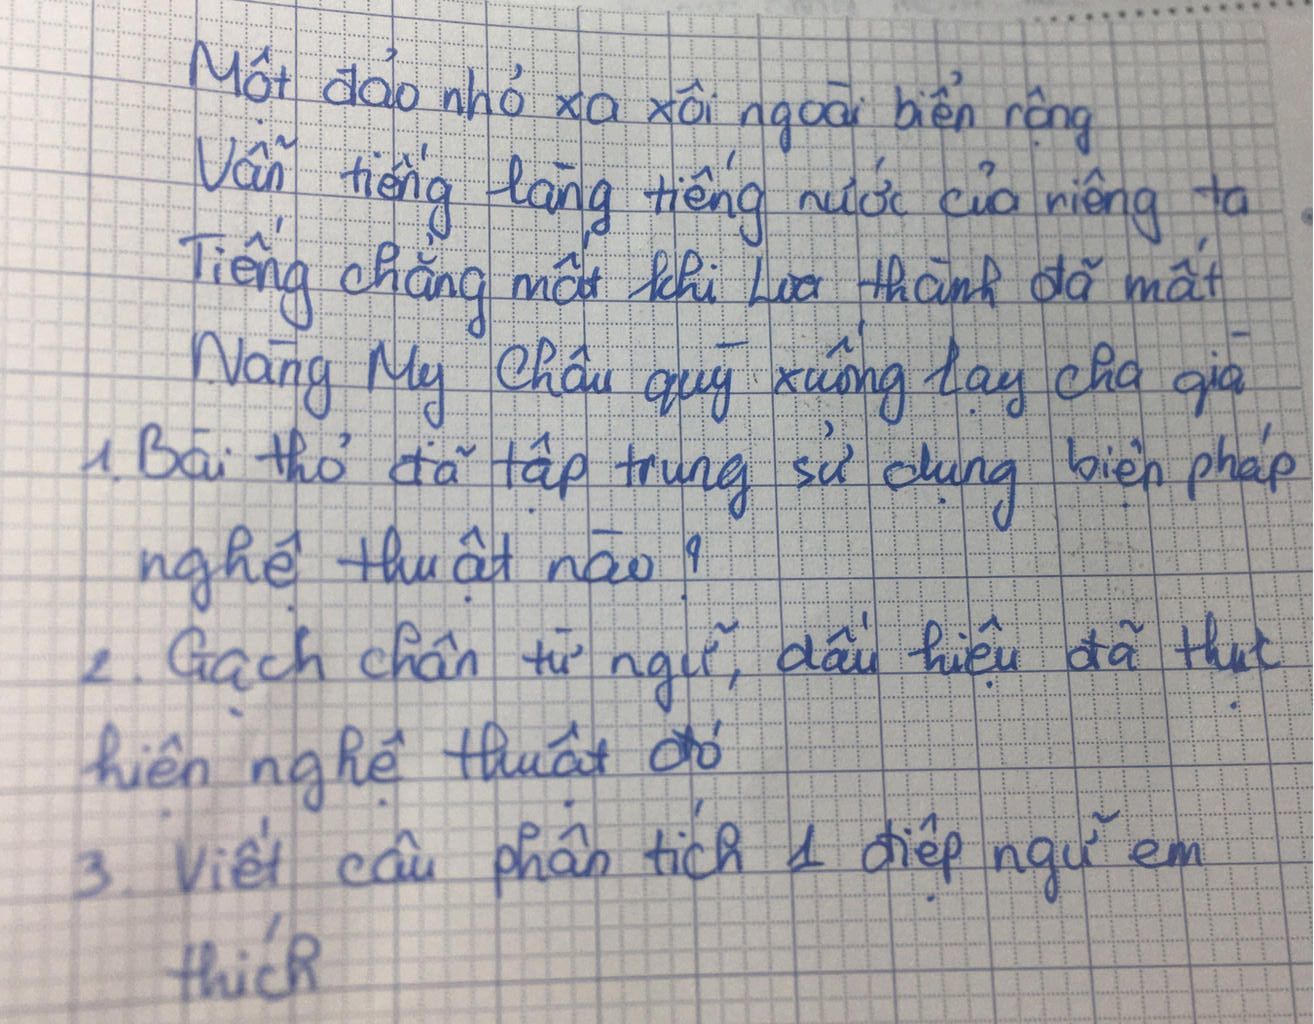 Một đảo nhỏ xa xôi ngoài biển rộng
Vẫn tiếng làng tiếng nước của riêng ta
Tiếng chẳng mất khi Loa thành đã mất
Nàng Mỵ Châu quỳ xuống lạy cha già
1. Bài thơ đã tập trung sử dụng biện pháp
nghệ thuật nào?
2. Gạch chân từ ngữ, dấu hiệu đã thực
hiện nghệ thuật đó
3. Viết câu phân tích 1 điệp ngữ em
thích